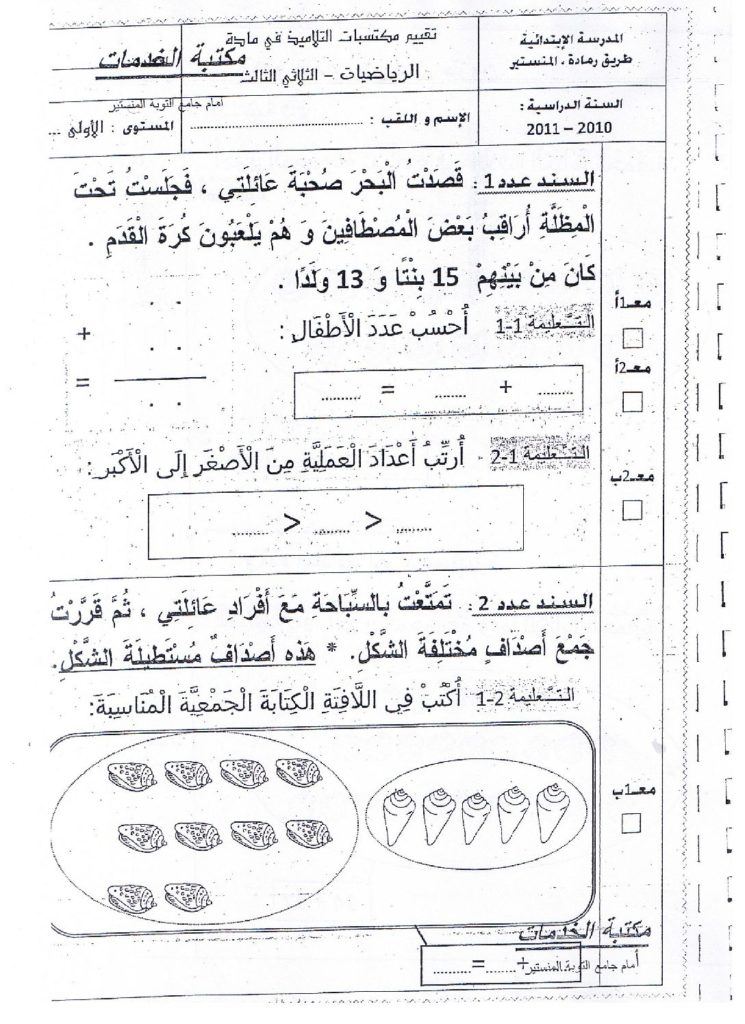 المدرسة الإبتدائية
طريق رمادة ، المنستير
تقييم مكتسبات التلاميذ في مادة
الرياضيات – الثلاثي الثالث
مكتبة الخدمات
أمام جامع التوبة المنستير
السنة الدراسية :
2010 – 2011
الإسم و اللقب : ..............................
المستوى : الأولى ...
السند عدد1 : قَصَدْتُ الْبَحْرَ صُحْبَةَ عَائِلَتِي ، فَجَلَسْتُ تَحْتَ
الْمِظَلَّةِ أُرَاقِبُ بَعْضَ الْمُصْطَافِينَ وَ هُمْ يَلْعَبُونَ كُرَةَ الْقَدَمِ .
كَانَ مِنْ بَيْنِهِمْ 15 بِنْتًا وَ 13 وَلَدًا .
معـ1أ
التـّـعليمة 1-1 أُحْسُبْ عَدَدَ الْأَطْفَالِ :
. .
+
. .
=
. .
معـ2أ
......... + ........ = ..........
التـّـعليمة 1-2 أُرَتِّبُ أَعْدَادَ الْعَمَلِيَّةِ مِنَ الْأَصْغَرِ إِلَى الْأَكْبَرِ :
معـ2ب
......... < ......... < .........
السند عدد 2 : تَمَتَّعْتُ بِالسِّبَاحَةِ مَعَ أَفْرَادِ عَائِلَتِي ، ثُمَّ قَرَّرْتُ
جَمْعَ أَصْدَافٍ مُخْتَلِفَةَ الشَّكْلِ. * هَذِه أَصْدَافٌ مُسْتَطِيلَةَ الشَّكْلِ.
التـّـعليمة 2-1 أُكْتُبْ فِي اللَّافِتَةِ الْكِتَابَةَ الْجَمْعِيَّةَ الْمُنَاسِبَةَ:
معـ1ب
مكتبة الخدمات
أمام جامع التوبة المنستير
+.......=........